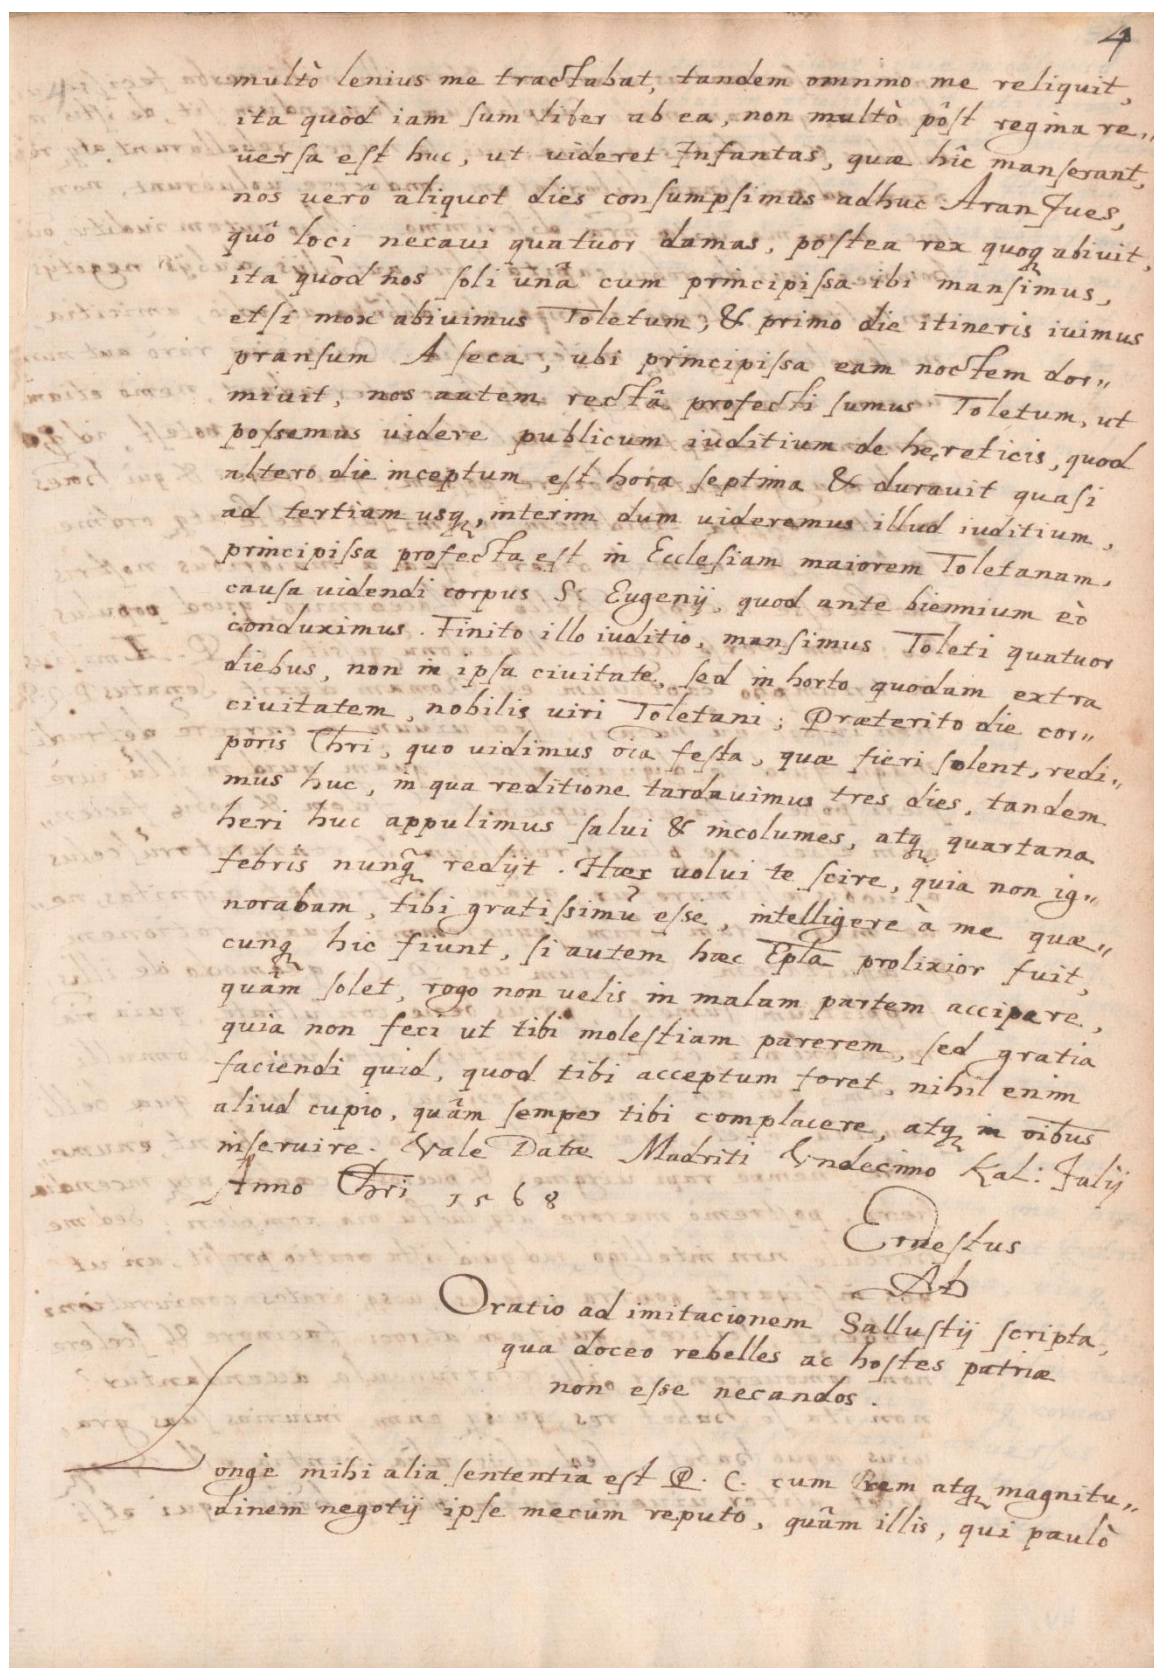 4
multò lenius me tractabat, tandem omnino me reliquit,
ita quòd iam sum liber ab ea, non multò pôst regina re„
uersa est huc, ut uideret Infantas, quæ hîc manserant,
nos uerò aliquot dies consumpsimus adhuc AranJues,
quô loci necaui quatuor damas, postea rex quoq abiuit,
ita quòd nos soli unâ cum principissa ibi mansimus,
etsi mox abiuimus Toletum, & primo die itineris iuimus
pransum A seca, ubi principissa eam noctem dor„
miuit, nos autem rectâ profecti sumus Toletum, ut
possemus uidere publicum iuditium de hereticis, quod
altero die inceptum est hora septima & durauit quasi
ad tertiam usq, interim dum uideremus illud iuditium,
principissa profecta est in Ecclesiam maiorem Toletanam,
causa uidendi corpus S. Eugenij, quod ante biennium eò
conduximus. Finito illo iuditio, mansimus Toleti quatuor
diebus, non in ipsa ciuitate, sed in horto quodam extra
ciuitatem, nobilis uiri Toletani; Præterito die cor„
poris Chri, quo uidimus oĩa festa, quæ fieri solent, redi„
mus huc, in qua reditione tardauimus tres dies, tandem
heri huc appulimus salui & incolumes, atq quartana
febris nunq̃ redijt. Hæc uolui te scire, quia non ig„
norabam, tibi gratissimũ esse, intelligere à me quæ„
cunq hic fiunt, si autem hæc Epl̃a prolixior fuit,
quâm solet, rogo non uelis in malam partem accipere,
quia non feci ut tibi molestiam parerem, sed gratia
faciendi quid, quod tibi acceptum foret, nihil enim
aliud cupio, quâm semper tibi complacere, atq in oĩbus
inseruire. Vale Datæ Madriti Vndecimo Kal: Julij
Anno Chri 1568
Ernestus
Oratio ad imitacionem Sallustij scripta,
qua doceo rebelles ac hostes patriæ
non esse necandos.
Longe mihi alia sententia est P. C. cum Rem atq magnitu„
dinem negotij ipse mecum reputo, quâm illis, qui paulò